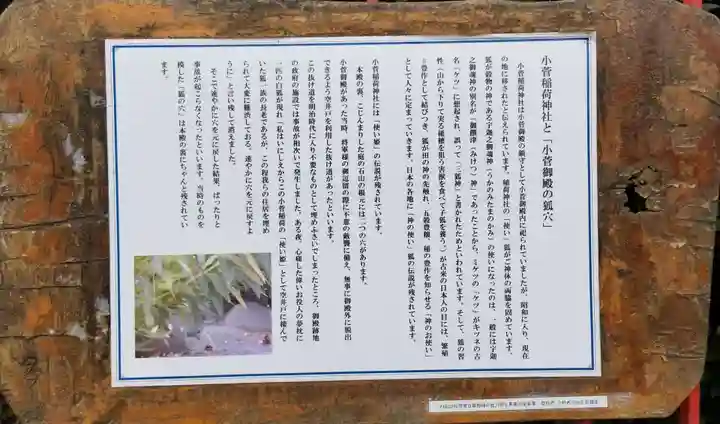 小菅稲荷神社と「小菅御殿の狐穴」
小菅稲荷神社は小菅御殿の鎮守として小菅御殿内に祀られていましたが、昭和に入り、現在
の地に移されたと伝えられています。稲荷神社の「使い」狐がご神体の両脇を固めています。
狐が穀物の神である宇迦之御魂神（うかのみたまのかみ）の使いになったのは、一般には宇迦
之御魂神の別名が「御饌津（みけつ）神」であったことから、ミケツの「ケツ」がキツネの古
名「ケツ」に想起され、誤って「三狐神」と書かれたためといわれています。そして、狐の習
性（山から下りて実る稲穂を狙う害獣を食べて子狐を養う）が古来の日本人の目には、繁殖
＝豊作として結びつき、狐が田の神の先触れ、五穀豊穣、稲の豊作を知らせる「神のお使い」
として人々に定まっていきます。日本の各地に「神の使い」狐の伝説が残されています。
小菅稲荷神社には「使い姫」の伝説が残されています。
本殿の裏、こじんまりした庭の石山の根元には二つの穴があります。
小菅御殿があった当時、将軍様の御逗留の際に不意の敵襲に備え、無事に御殿外に脱出
できるよう空井戸を利用した抜け道があったといいます。
この抜け道を明治時代に入り不要なものとして埋めふさいでしまったところ、御殿跡地
の政府の施設では事故が相次いで発生しました。ある夜、心痛した偉いお役人の夢枕に
一匹の白狐が現れ「私はいにしえからこの小菅稲荷の「使い姫」として空井戸に棲んで
いた狐一族の長老であるが、この程我らの住居を埋め
られて大変に難渋しておる。速やかに穴を元に戻すよ
うに」と言い残して消えました。
そこで速やかに穴を元に戻した結果、ぱったりと
事故が起こらなくなったといいます。当時のものを
模した「狐の穴」は本殿の裏にちゃんと残されてい
ます。